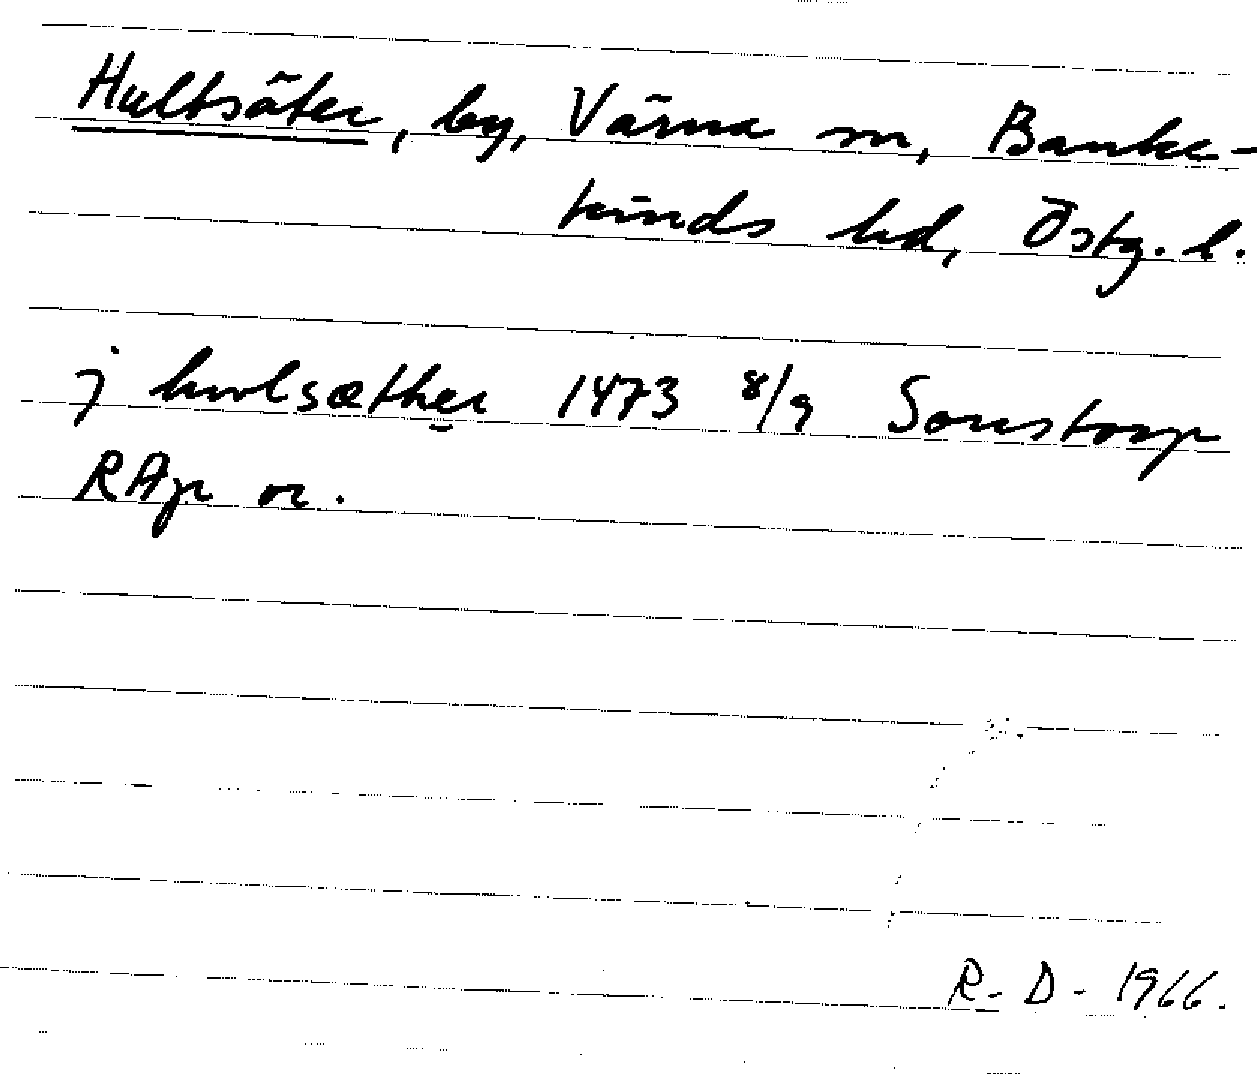 Hultsäter, by, Värna sn, Banke-
kinds hd, Östg. l.
j hwlsæther 1473 8/9 Sonstorp
RAp or.
R-D-1966.